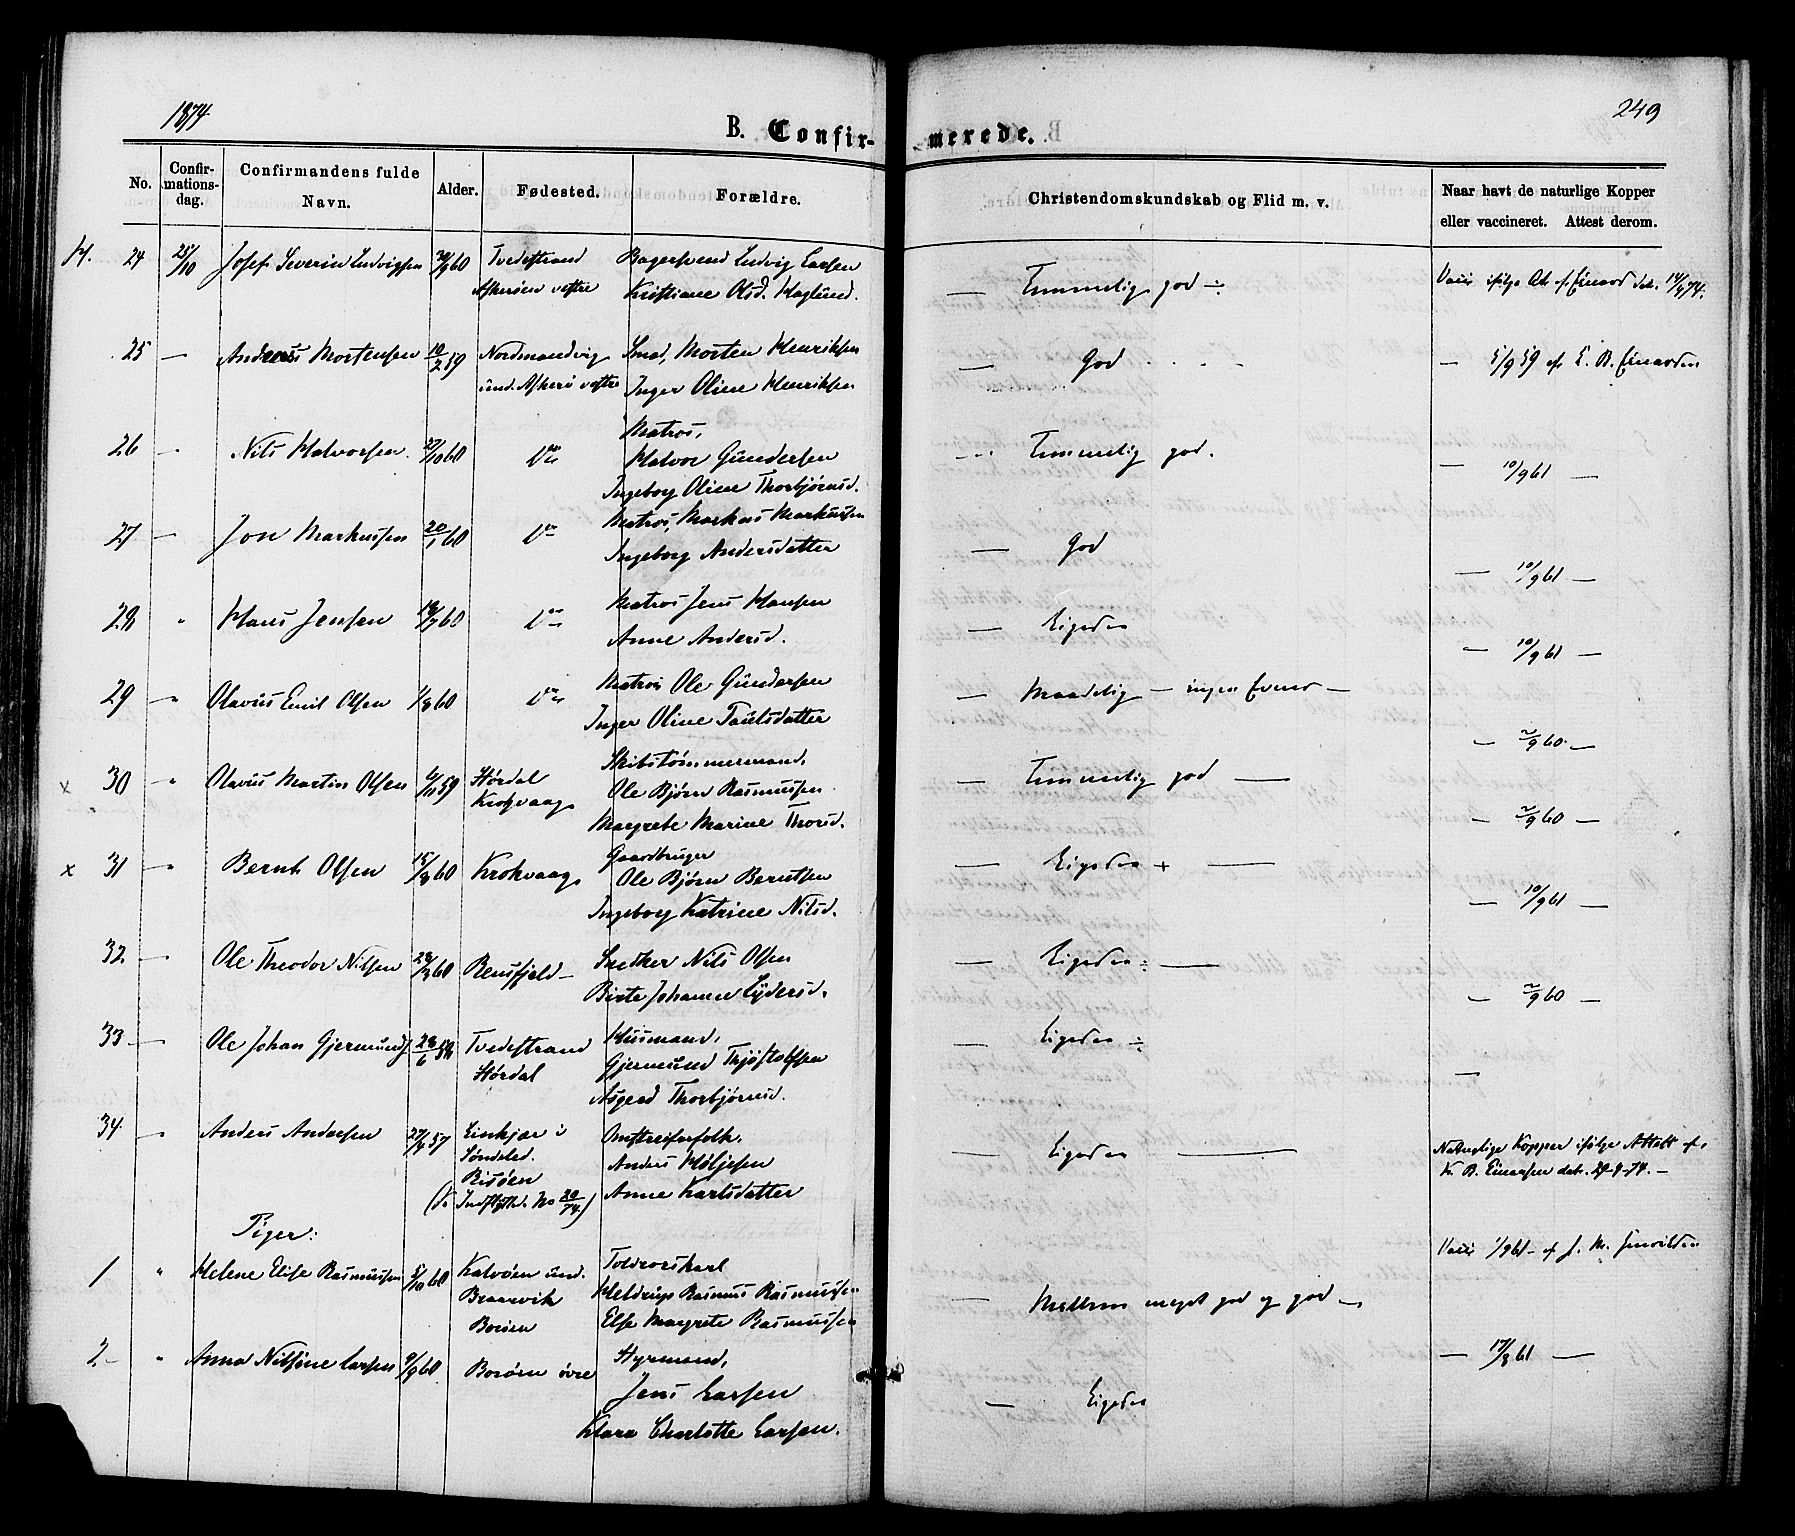 1874
249
B. Confir-
merede.
No.
Confir-
mations-
dag.
Confirmandens fulde
Navn.
Alder.
Fødested.
Forældre.
Christendomskundskab og Flid m. v.
Naar havt de naturlige Kopper
eller vaccineret. Attest derom.
24 25/10 Josef Severin Ludvigsen 60 Tvedestrand Bagersvend Ludvig Larsen
Askerøen vestre Kristiane Olsd. Haglund.
— Temmelig god ÷
25 — Andreas Mortensen 10/2 59 Nordmandvig Smed, Morten Henriksen
und. Askerø vestre Inger Oline Henriksen
— God
— 5/9 59 af E. B.
26 — Nils Halvorsen 27/10 60 Do Matros,
Halvor Gundersen
Ingeborg Oline Thorbjørnsd.
— Temmelig god.
— 10/9 61 —
27 — Jon Markussen 20/1 60 Do Matros, Markus Markussen
Ingeborg Andersdatter
— God
— 10/9 61 —
28 " Hans Jensen 18/7 60 Do Matros Jens Hansen
Anne Andersd.
— Ligedan
— 10/9 61 —
29 — Olavus Emil Olsen 1/8 60 Do Matros Ole Gundersen
Inger Oline Paulsdatter
— Maadelig — ingen Evner —
— 2/9 60 —
x 30 " Olavus Martin Olsen 6/11 59 Hørdal Skibstømmermand,
Krokvaag Ole Bjørn Rasmussen
Margrete Marine Thorsd.
— Temmelig god —
— 2/9 60 —
x 31 " Bernt Olsen 15/8 60 Krokvaag Gaardbruger
Ole Bjørn Berntsen
Ingeborg Katrine Nilsd.
— Ligedan + —
— 10/9 61 —
32 — Ole Theodor Nilsen 28/3 60 Rensfjeld Snedker Nils Olsen
Birte Johanne Lydersd.
— Ligedan ÷ —
— 2/9 60 —
33 — Ole Johan Gjermunds 28/6 59 Tvedestrand Husmand,
Hørdal Gjermund Thjøstolfsen
Asgerd Thorbjørnsd.
— Ligedan ÷
—
34 — Anders Andersen 27/4 57 Linkjær i Omstreiferfolk,
Søndeled. Anders
Risøen Anne Karlsdatter
No 20/74)
— Ligedan —
Naturlige Kopper ifølge Attest af
K. B. Einarsen dat. 29-9-74. —
Piger:
1 " Helene Elise Rasmussen 5/10 60 Kalvøen und. Toldrorskarl
Braarvik Rasmus Rasmussen
Borøen Else Margrete Rasmussen
— Mellem meget god og god —
2 " Anna Nilsine Larsen 9/9 60 Borøen øvre Styrmand,
Jens Larsen
Klara Charlotte Larsen.
— Ligedan
— 17/8 61 —